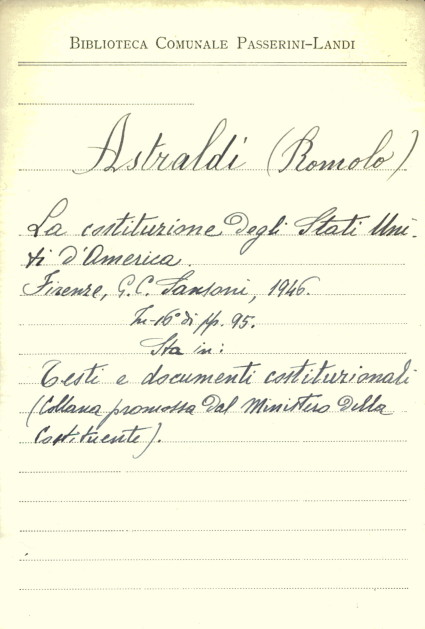 BIBLIOTECA COMUNALE PASSERINI-LANDI
Astraldi (Romolo)
La costituzione degli Stati Uni-
ti d'America.
Firenze, G.C. Sansoni, 1946.
In-16° di pp. 95.
Sta in:
Testi e documenti costituzionali
(Collana promossa dal Ministero della
Costituente).